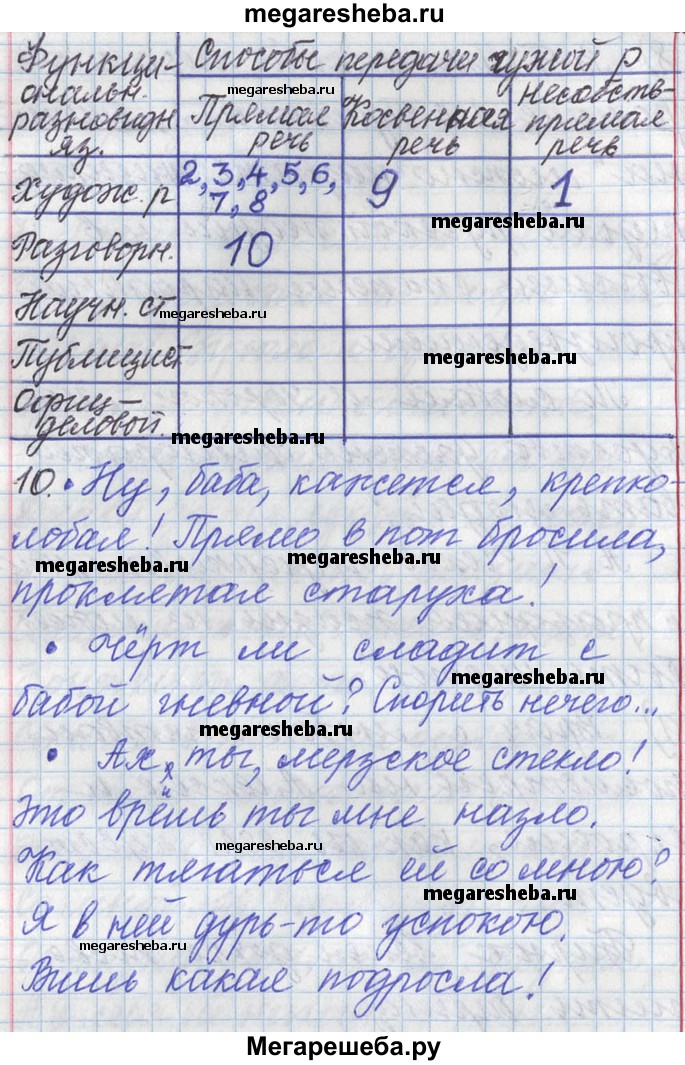 megaresheba.ru
Функци- Способы передачи чужой р
ональн. megaresheba.ru
разновидн Прямая Косвенная Несобств-
яз. речь речь прямая
речь
Худож. р 2, 3, 4, 5, 6, 9 1
7, 8
megaresheba.ru
Разговорн. 10
Научн. ст megaresheba.ru
Публицист megaresheba.ru
Офиц-
деловой. megaresheba.ru
10. • Ну, баба, кажется, крепко-
лобая! Прямо в пот бросила,
megaresheba.ru megaresheba.ru
проклятая старуха!
• Чёрт ли сладит с
megaresheba.ru
бабой гневной? Спорить нечего...
megaresheba.ru
• Ах, ты, мерзское стекло!
megaresheba.ru
Это врёшь ты мне назло.
megaresheba.ru
Как тягаться ей со мною?
megaresheba.ru
Я в ней дурь-то успокою.
megaresheba.ru
Вишь какая подросла!
Мегарешеба.ру